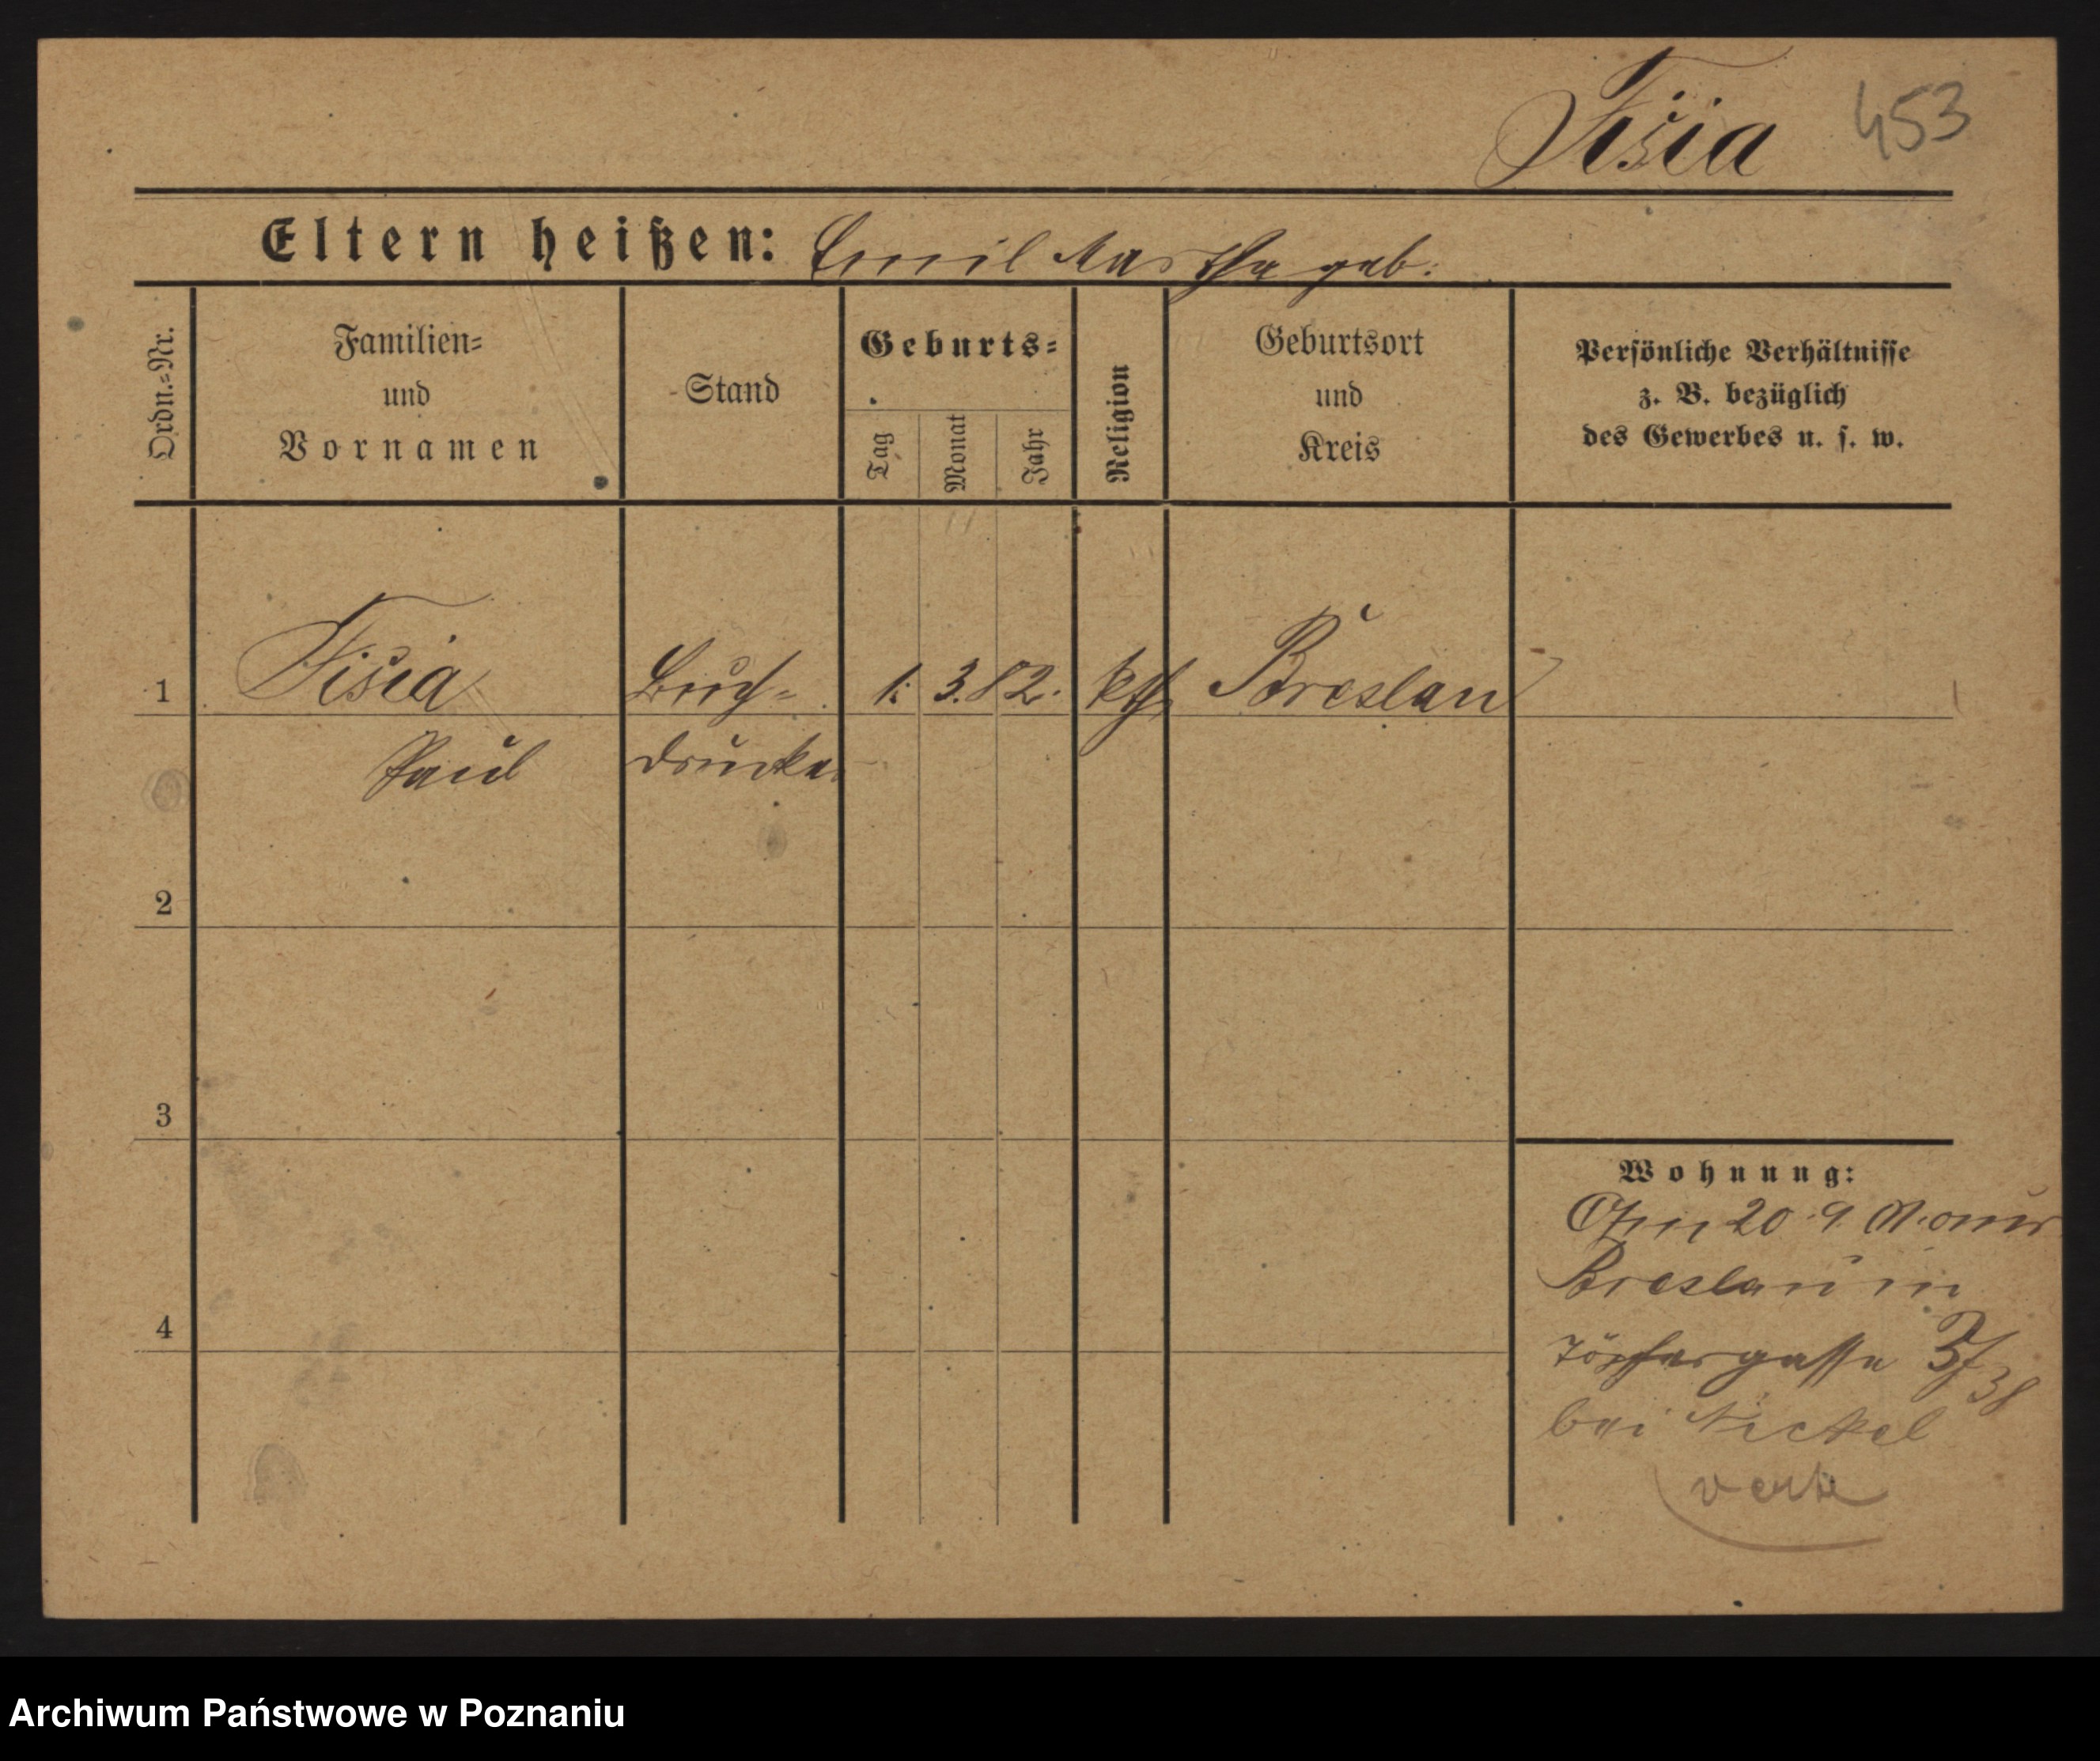 Fisia 453
Eltern heißen: Emil Martha geb.
Ordn.-Nr.
Familien-
und
Vornamen
Stand
Geburts-
Tag
Monat
Jahr
Religion
Geburtsort
und
Kreis
Persönliche Verhältnisse
z. B. bezüglich
des Gewerbes u. s. w.
1 Fisia Buch- 1. 3. 82. kth Breslau
Paul drucker
2
3
4
Wohnung:
20. 9.
Breslau in
Töpfergasse 3/
38
bei Nickel
verte
Archiwum Państwowe w Poznaniu